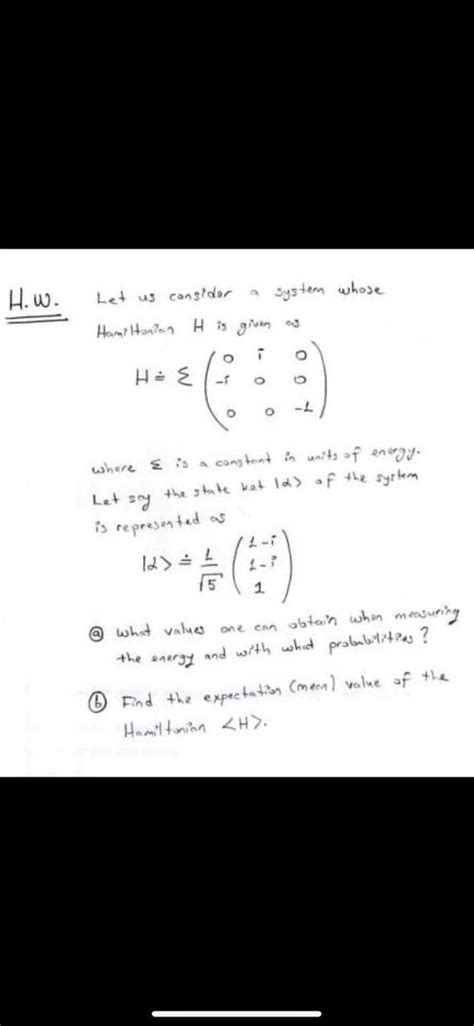 H.W. Let us consider a system whose
Hamiltonian H is given as
H ≐ Ɛ ( 0 i 0
-i 0 0
0 0 -1 )
where Ɛ is a constant in units of energy.
Let say the state ket |α> of the system
is represented as
|α> ≐ 1/√5 ( 1-i
1-i
1 )
(a) What values one can obtain when measuring
the energy and with what probabilities?
(b) Find the expectation (mean) value of the
Hamiltonian <H>.